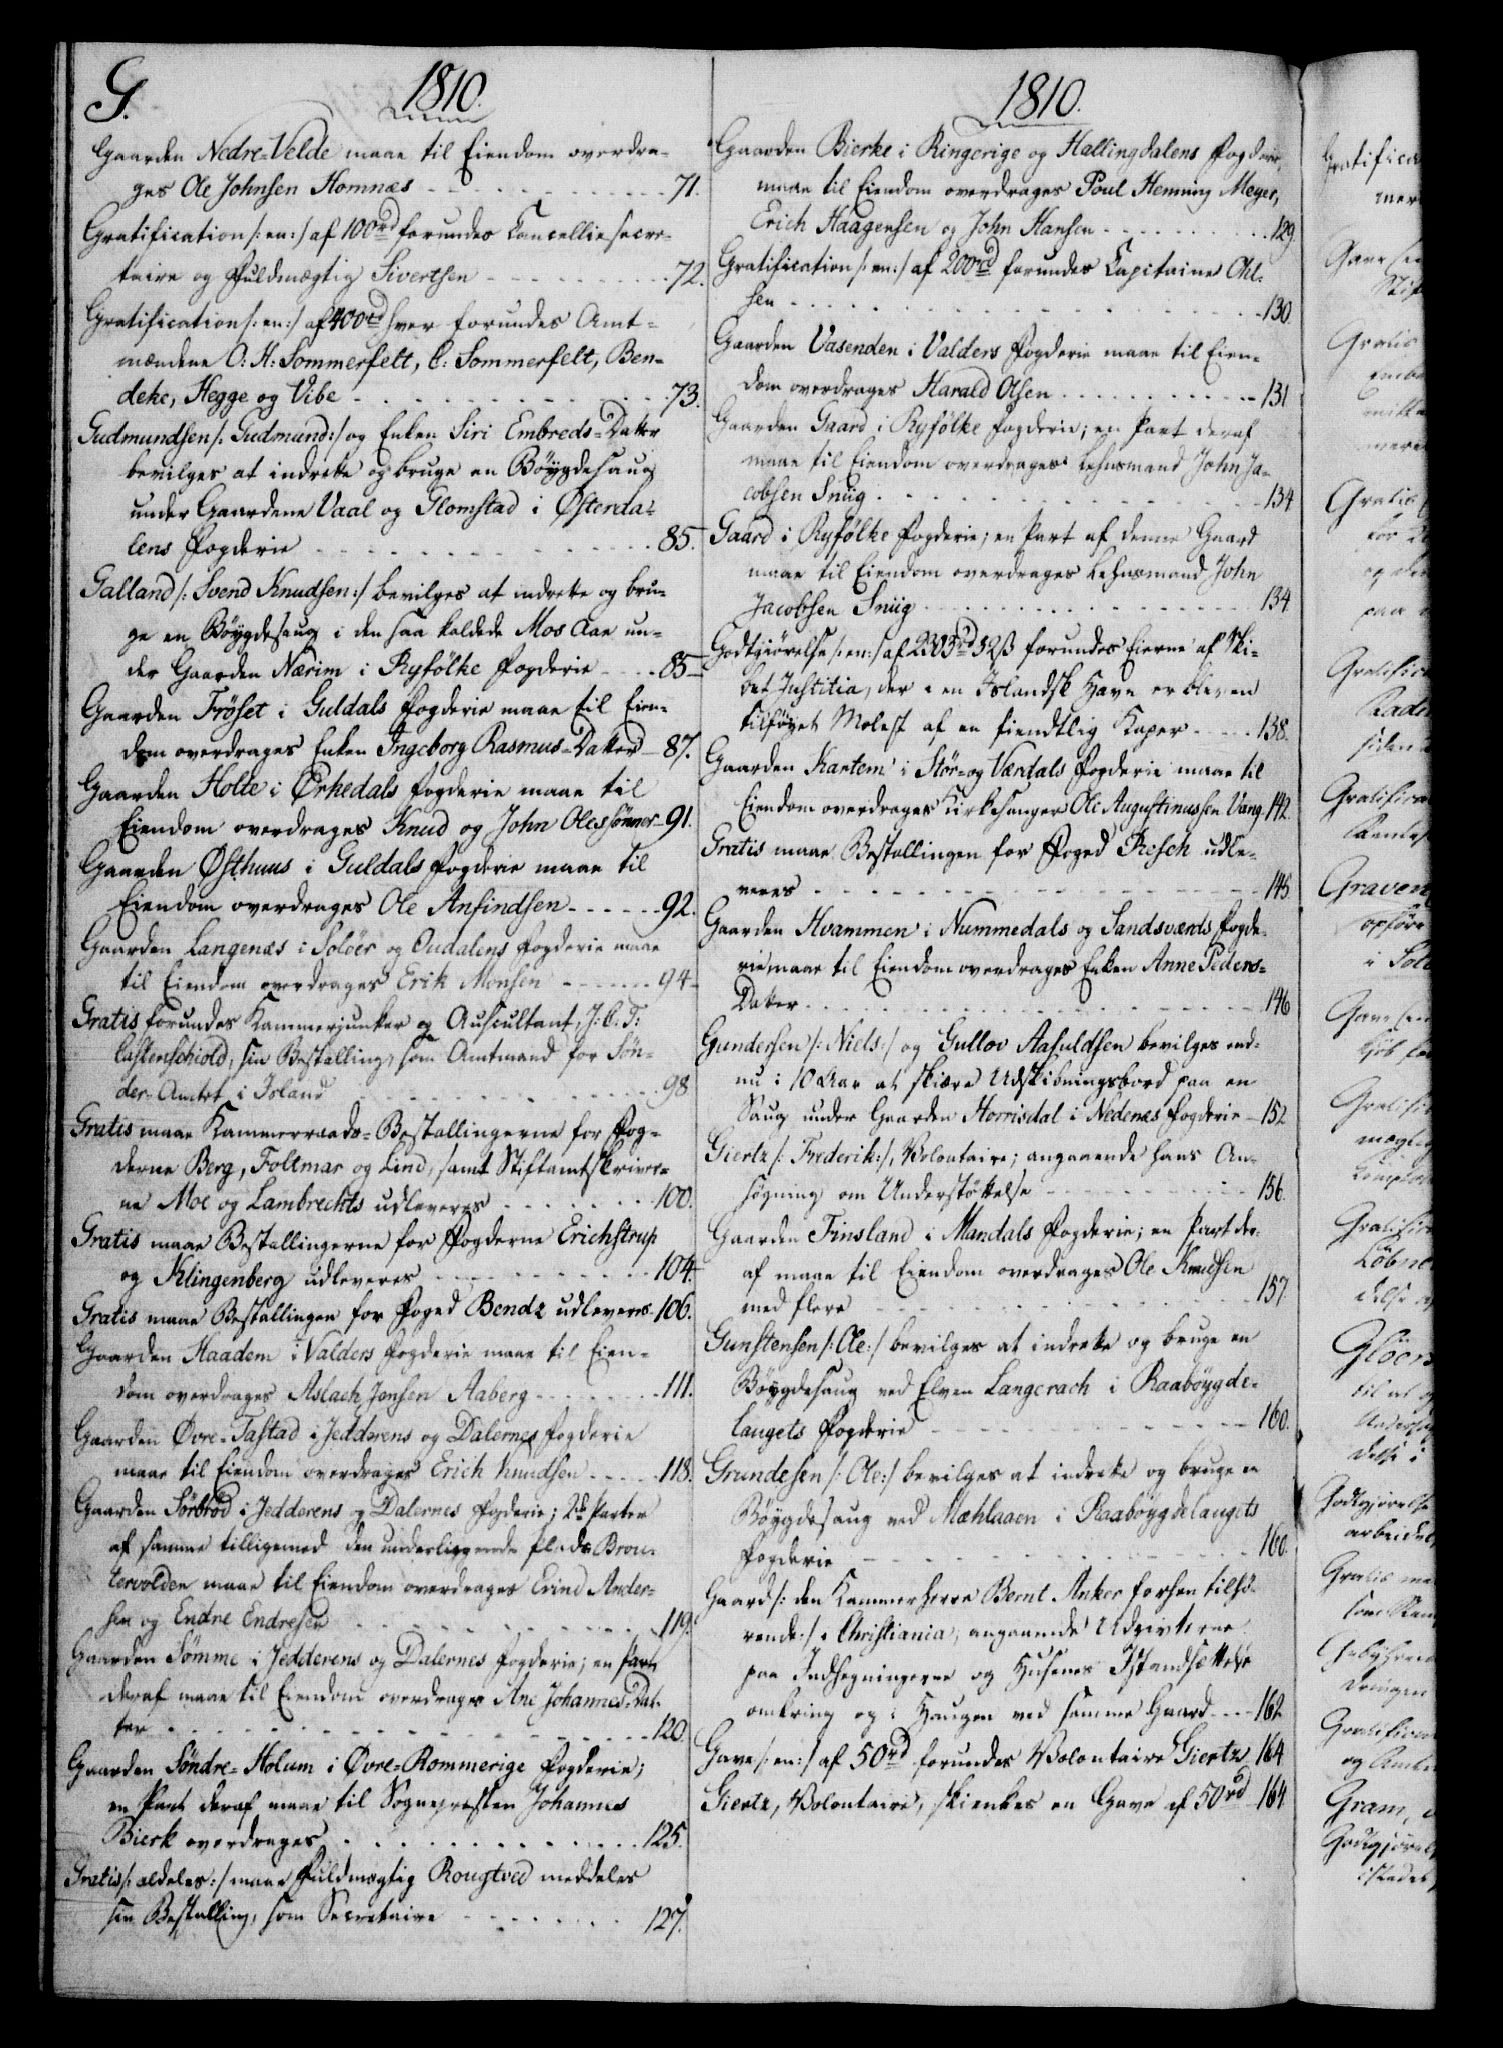 G.
1810.
Gaarden Nedre-Velde maae til Eiendom overdra-
ges Ole Johnsen Homnæs - - - 71.
Gratification /: en :/ af 100rd forundes Cancelliesecre-
taire og Fuldmægtig Sivertsen - - - 72.
Gratification /: en :/ af 400rd hver forundes Amt-
mændene O: H: Sommerfelt, C: Sommerfelt, Ben-
deke, Hegge og Vibe - - - 73.
Gudmundsen /: Gudmund :/ og Enken Siri Embreds-Datter
bevilges at indrette og bruge en Böygdesaug
under Gaardene Vaal og Glomstad i Østerda-
lens Fogderie - - - 85.
Galland /: Svend Knudsen :/ bevilges at indrette og bru-
ge en Böygdesaug i den saa kaldede Mos Aae un-
der Gaarden Nærim i Ryfölke Fogderie - - - 85-
Gaarden Fröset i Guldals Fogderie maae til Eien-
dom overdrages Enken Ingeborg Rasmus-Datter - 87.
Gaarden Holte i Ørkedals Fogderie maae til
Eiendom overdrages Knud og John Olessönner - 91.
Gaarden Østhuus i Guldals Fogderie maae til
Eiendom overdrages Ole Anfindsen - - - 92.
Gaarden Langenæs i Solöer og Oudalens Fogderie maae
til Eiendom overdrages Erik Monsen - - - 94-
Gratis forundes Kammerjunker og Auscultant, J: C: T:
Castenschiold, sin Bestalling, som Amtmand for Søn-
der-Amtet i Island - - - 98
Gratis maae Kammerraads-Bestallingerne for Fog-
derne Berg, Foltmar og Lind, samt Stiftamtskriver-
ne Moe og Lambrechts udleveres - - - 100.
Gratis maae Bestallingerne for Fogderne Erichstrup
og Klingenberg udleveres - - - 104.
Gratis maae Bestallingen for Foged Bendz udleveres - 106.
Gaarden Haadem i Valders Fogderie maae til Eien-
dom overdrages Aslach Jonsen Aaberg - - - 111.
Gaarden Øvre-Tastad i Jedderens og Dalernes Fogderie
maae til Eiendom overdrages Erich Knudsen - - - 118.
Gaarden Sörbröd i Jedderens og Dalernes Fogderie; 2de Parter
af samme tilligemed den underliggende Plads Brou-
tervolden maae til Eiendom overdrages Erind Ander-
sen og Endre Endresen - - - 119.
Gaarden Sömme i Jedderens og Dalernes Fogderie; en Part
deraf maae til Eiendom overdrages Ane Johannes-Dat-
ter - - - 120.
Gaarden Söndre-Holum i Øvre-Rommerige Fogderie;
en Part deraf maae til Sognepresten Johannes
Bierk overdrages - - - 125.
Gratis /: aldeles :/ maae Fuldmægtig Rougtved meddeles
sin Bestalling, som Secretaire - - - 127.
1810.
Gaarden Bierke i Ringerige og Hallingdalens Fogderie,
maae til Eiendom overdrages Poul Henning Meyer,
Erich Haagensen og John Hansen - - - 129.
Gratification /: en :/ af 200rd forundes Capitaine Ohl-
sen - - - 130.
Gaarden Vasenden i Valders Fogderie maae til Eien-
dom overdrages Harald Olsen - - - 131
Gaarden Gaard i Ryfölke Fogderie; en Part deraf
maae til Eiendom overdrages Lehnsmand John Ja-
cobsen Sniig - - - 134
Gaard i Ryfölke Fogderie; en Part af denne Gaard
maae til Eiendom overdrages Lehnsmand John
Jacobsen Sniig - - - 134
Godtgiörelse /: en :/ af 2303rd 32ß forundes Eierne af Ski-
bet Justitia, der i en Islandsk Havn er bleven
tilföyet Molest af en fiendtlig Kaper - - - 138.
Gaarden Kartem i Stör- og Værdals Fogderie maae til
Eiendom overdrages Kirkesanger Ole Augustinussen Vang - 142.
Gratis maae Bestallingen for Foged Resch udle-
veres - - - 145
Gaarden Hvammen i Nummedals og Sandsværds Fogde-
rie maae til Eiendom overdrages Enken Anne Peders-
Datter - - - 146
Gundersen /: Niels :/ og Gullov Aasuldsen bevilges end-
nu i 10 Aar at skiære Udskibningsbord paa en
Saug under Gaarden Horrisdal i Nedenæs Fogderie - 152
Giertz /: Frederik :/, Volontaire; angaaende hans An-
søgning om Understøttelse - - - 156.
Gaarden Finsland i Mandals Fogderie; en Part der-
af maae til Eiendom overdrages Ole Knudsen
med flere - - - 157
Gunstensen /: Ole :/ bevilges at indrette og bruge en
Böygdesaug ved Elven Langerach i Raaböygde-
laugets Fogderie - - - 160.
Grundesen /: Ole :/ bevilges at indrette og bruge en
Böygdesaug ved Mæhlaaen i Raaböygdelaugets
Fogderie - - - 160.
Gaard /: den Kammerherre Bernt Anker forhen tilhö-
rende :/ i Christiania, angaaende Udgivterne
paa Indhegningerne og Husenes Istandsættelse
omkring og i Haugen ved samme Gaard - - - 162
Gave /: en :/ af 50rd forundes Volontaire Giertz 164
Giertz, Volontaire, skienkes en Gave af 50rd 164